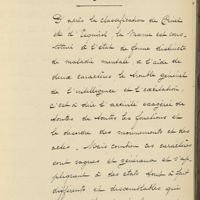 D'après la classification de Pinel
et d'Esquirol la Manie est cons-
tituée à l'état de forme distincte
de maladie mentale à l'aide de
deux caractères, le trouble général
de l'intelligence et l'excitation,
c'est à dire l'activité exagérée de
toutes de toutes les fonctions et
le désordre des mouvements et des
actes. Mais combien ces caractères
sont vagues et généraux et s'ap-
pliquant à des états tout à fait
différents et dissemblables qui